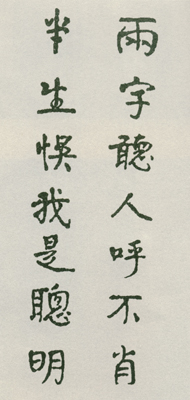 兩字聽人呼不肖
半生悞我是聰明